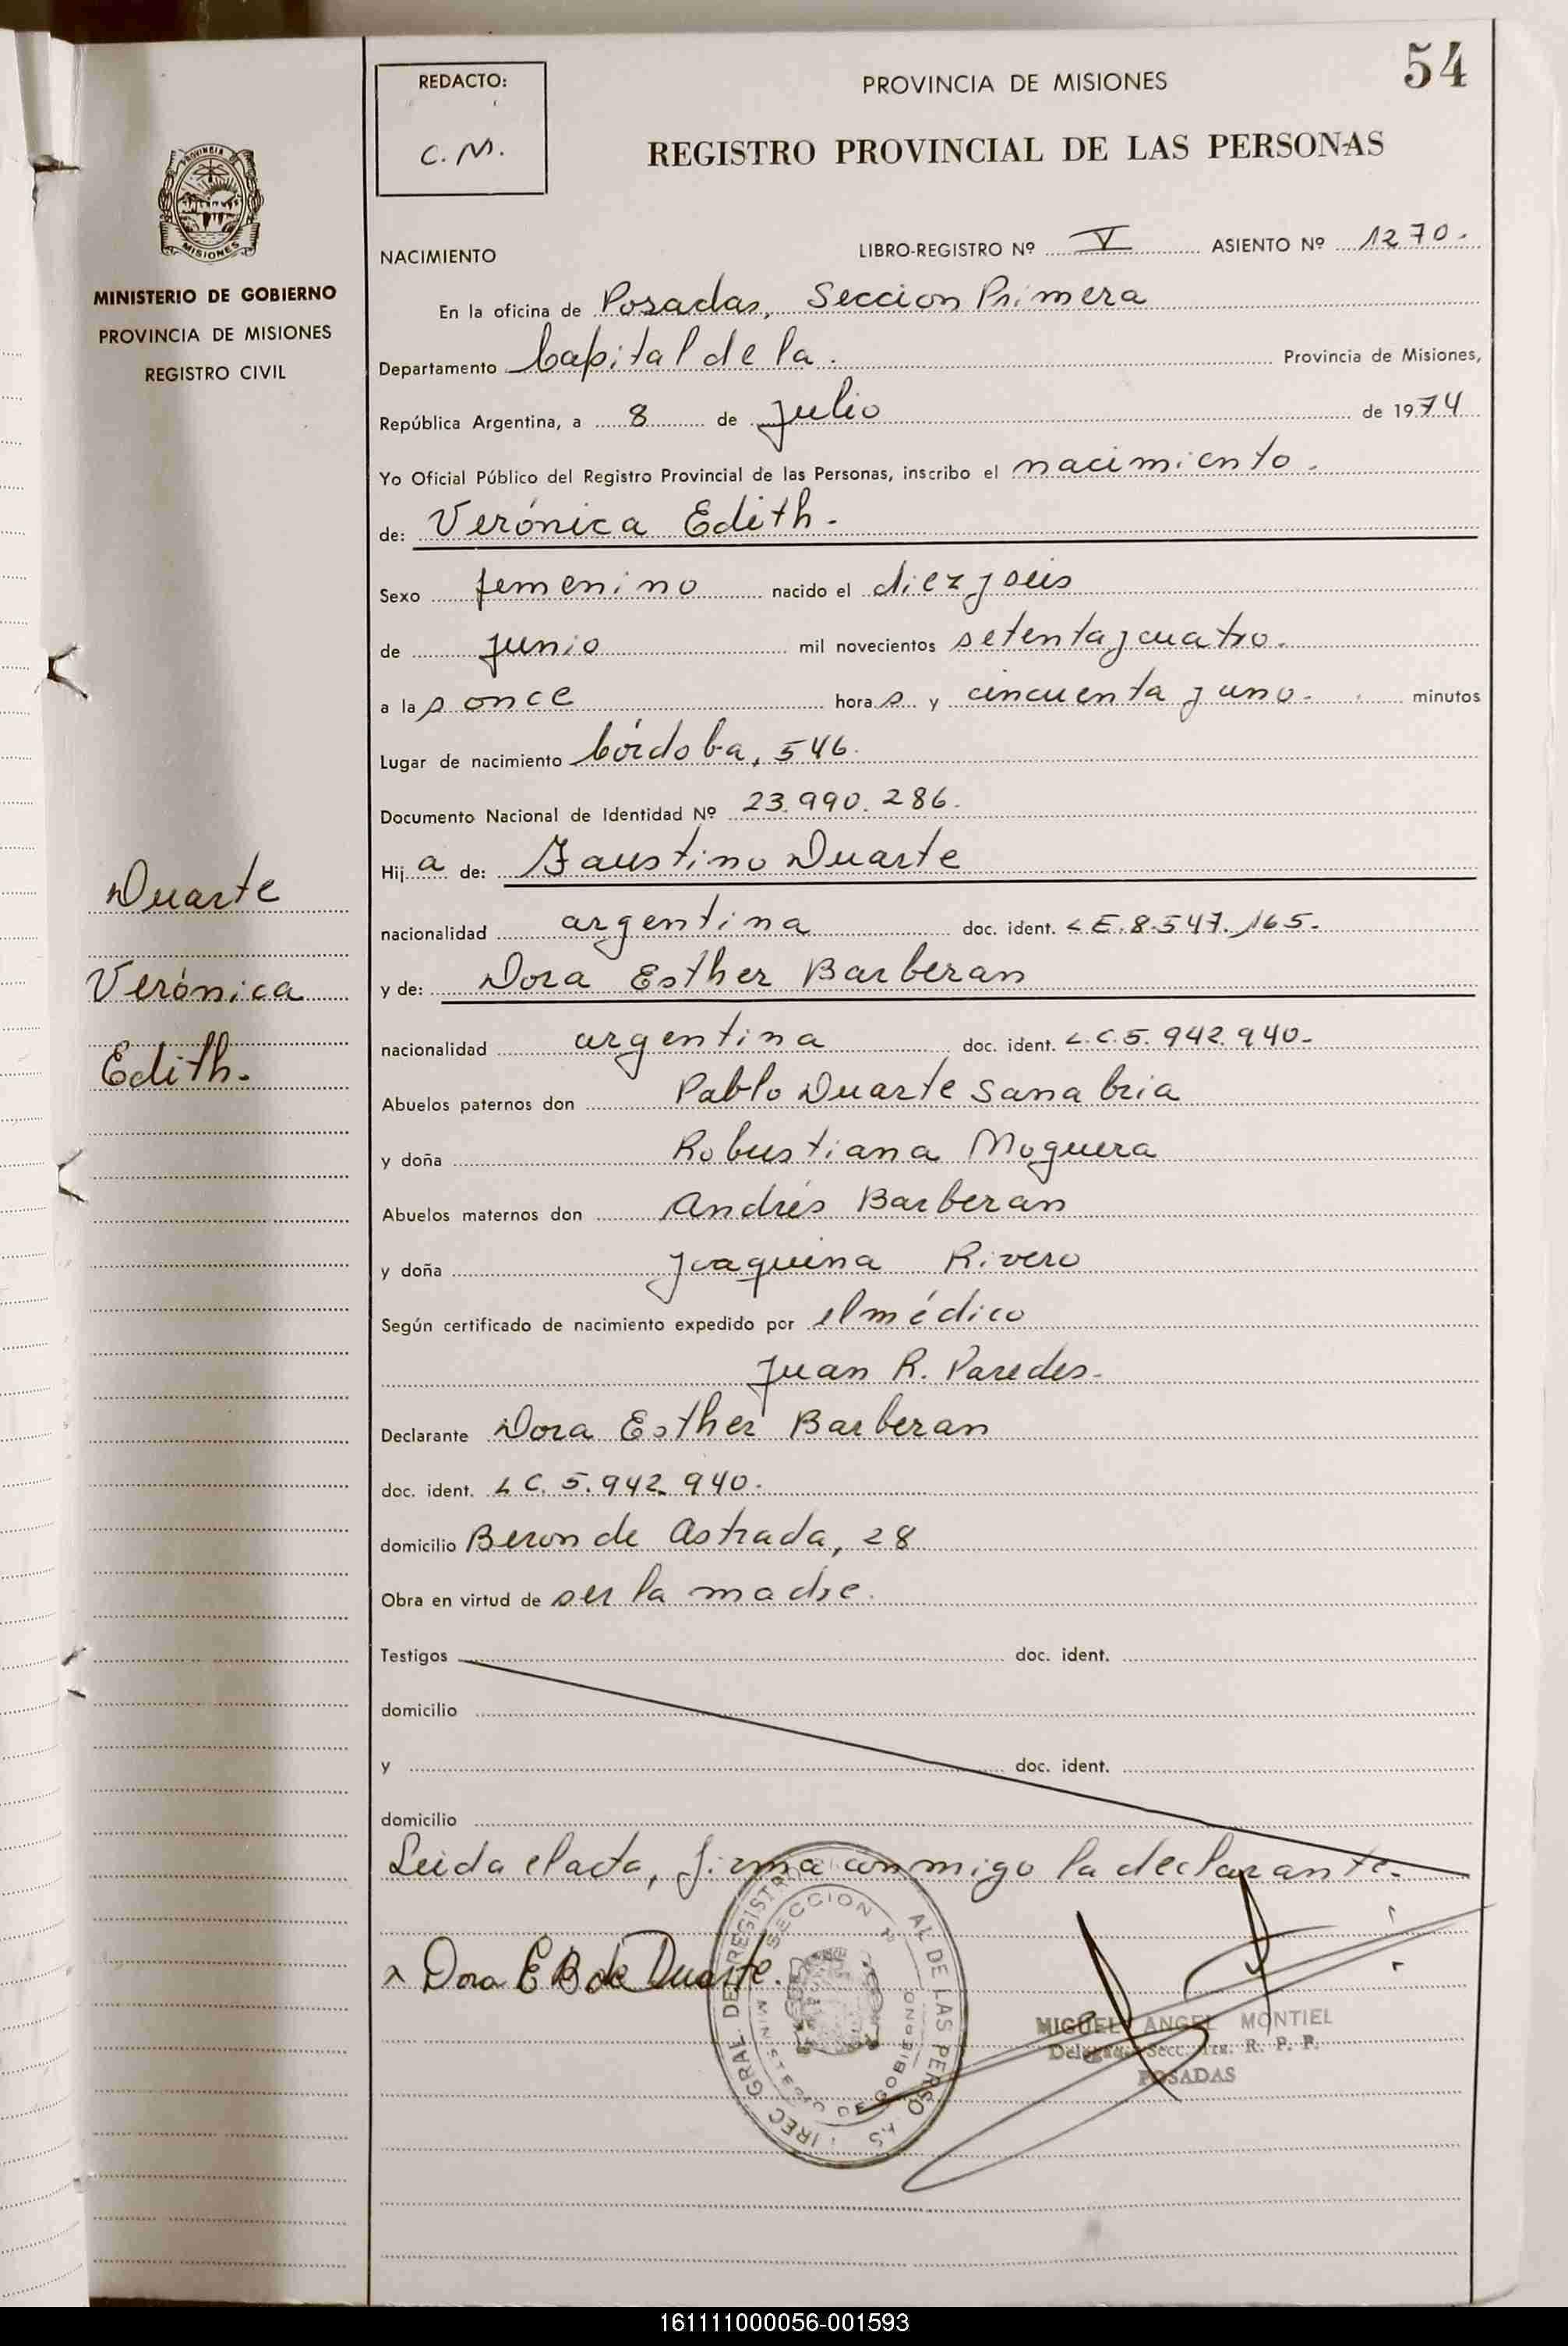 54
REDACTO:
C. M.
PROVINCIA DE MISIONES
REGISTRO PROVINCIAL DE LAS PERSONAS
PROVINCIA
MISIONES
MINISTERIO DE GOBIERNO
PROVINCIA DE MISIONES
REGISTRO CIVIL
NACIMIENTO LIBRO-REGISTRO Nº V ASIENTO Nº 1270.
En la oficina de Posadas, Seccion Primera
Departamento Capital de la. Provincia de Misiones,
República Argentina, a 8 de Julio de 1974
Yo Oficial Público del Registro Provincial de las Personas, inscribo el nacimiento.
de: Verónica Edith.
Sexo femenino nacido el diez y seis
de junio mil novecientos setenta y cuatro.
a las once horas y cincuenta y uno. minutos
Lugar de nacimiento Córdoba, 546.
Documento Nacional de Identidad Nº 23.990.286.
Hija de: Faustino Duarte
nacionalidad argentina doc. ident. L E. 8.547.165.
y de: Dora Esther Barberan
nacionalidad argentina doc. ident. L.C. 5.942.940.
Abuelos paternos don Pablo Duarte Sanabria
y doña Robustiana Moguera
Abuelos maternos don Andrés Barberan
y doña Joaquina Rivero
Según certificado de nacimiento expedido por el médico
Juan R. Paredes.
Declarante Dora Esther Barberan
doc. ident. L C. 5.942.940.
domicilio Beron de Astrada, 28
Obra en virtud de ser la madre.
Testigos doc. ident.
domicilio
y doc. ident.
domicilio
Leida el acta, firma conmigo la declarante.
Duarte
Verónica
Edith.
x Dora E B de Duarte.
SECCION 1ª
MINISTERIO DE GOBIERNO
MIGUEL ANGEL MONTIEL
Delegado Secc. 1ra. R. P. P.
POSADAS
161111000056-001593